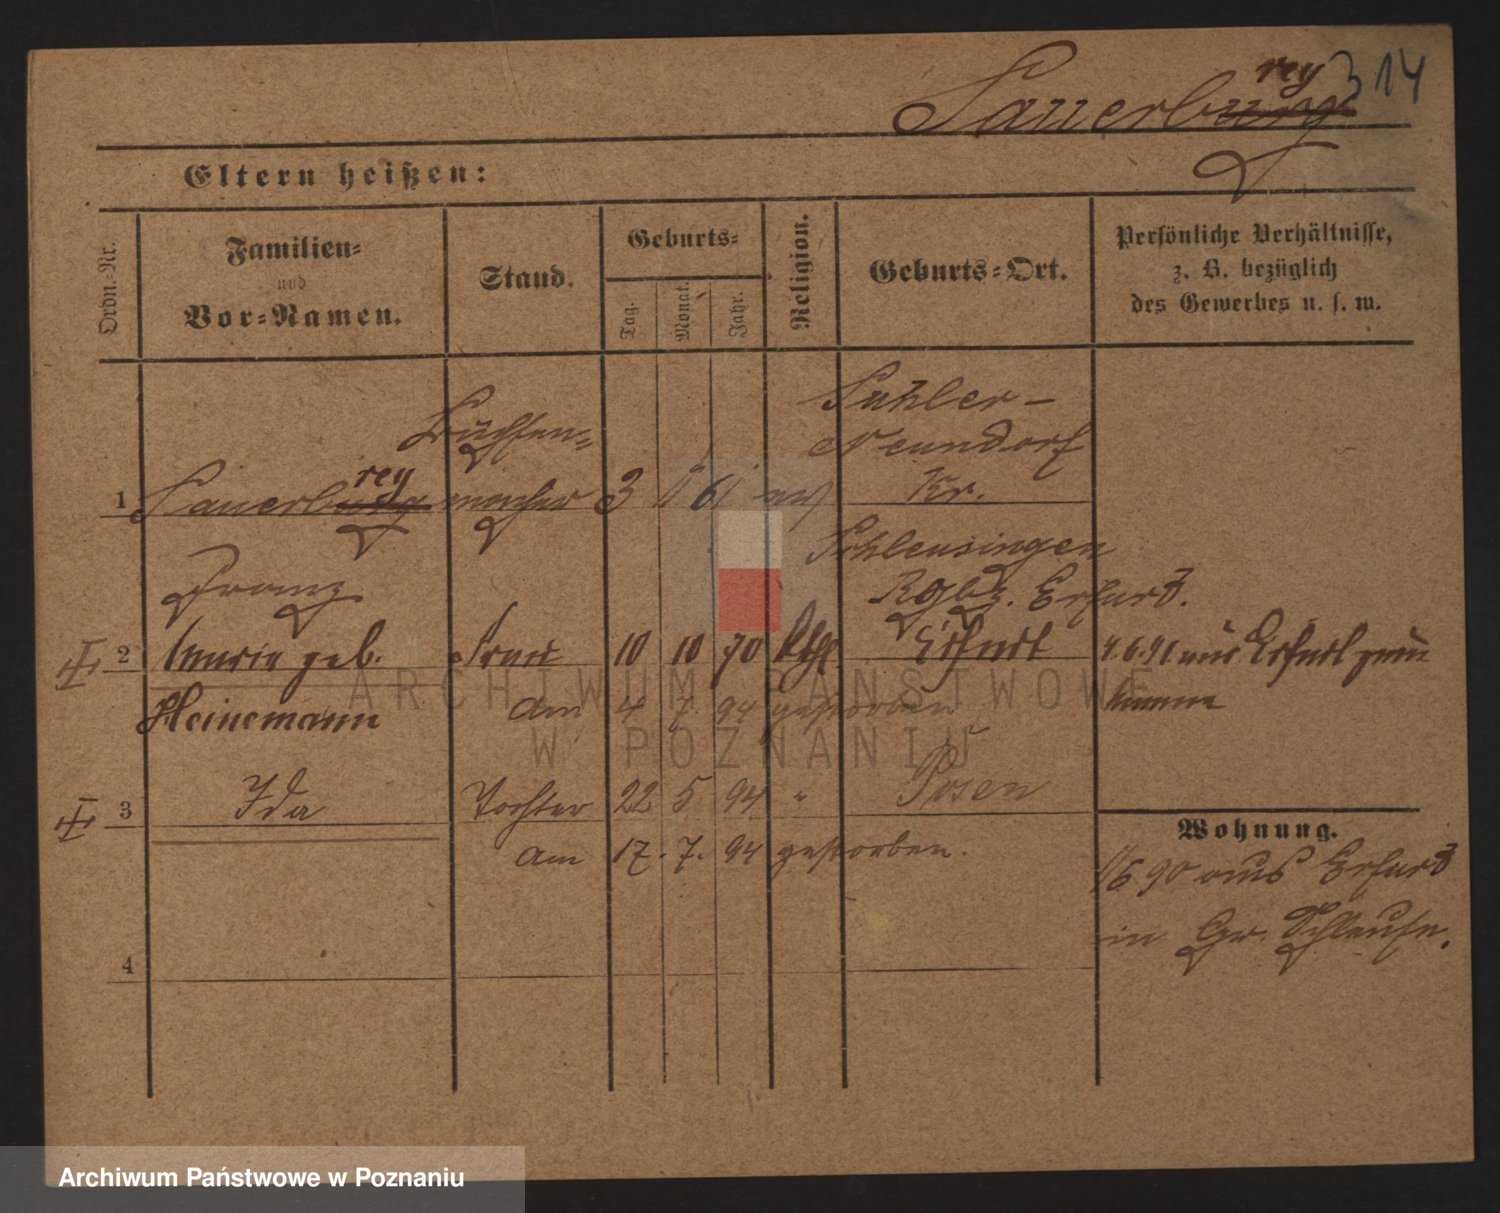 rey 314
Sauerburg
Eltern heißen:
Ordn.-Nr.
Familien-
und
Vor-Namen.
Stand.
Geburts-
Tag.
Monat.
Jahr.
Religion.
Geburts-Ort.
Persönliche Verhältnisse,
z. B. bezüglich
des Gewerbes u. s. w.
Suhler-
Büchsen-
Neundorf
rey
1 Sauerburg macher 3 11 61 ev Kr.
Schleusingen
Franz Rgbz. Erfurt.
2 Maria geb. Frau 10 10 70 kth Erfurt 4.6.91 aus Erfurt zum
Heinemann am 4 7 94 gestorben
3 Ida Tochter 22 5 94 " Posen
Wohnung.
am 17. 7. 94 gestorben.
1/6 90 aus Erfurt
in Gr. Schleuse.
4
ARCHIWUM PAŃSTWOWE
W POZNANIU
Archiwum Państwowe w Poznaniu